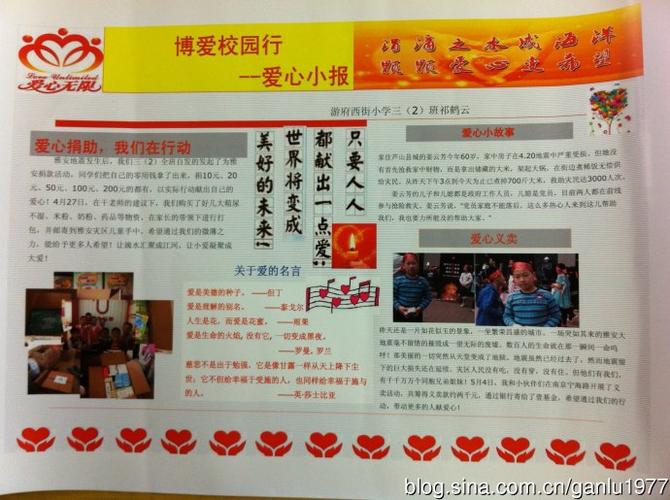 Love Unlimited
爱心无限
博爱校园行
--爱心小报
涓滴之水成海洋
颗颗爱心变希望
游府西街小学三（2）班祁鹤云
爱心捐助，我们在行动
雅安地震发生后，我们三（2）全班自发的发起了为雅
安捐款活动。同学们把自己的零用钱拿了出来，捐10元、20
元、50元、100元、200元的都有，以实际行动献出自己的
爱心！4月27日，在干老师的建议下，我们购买了好几大箱尿
不湿、米粉、奶粉、药品等物资，在家长的带领下进行打
包，并邮寄到雅安灾区儿童手中。希望通过我们的微薄之
力，能给予更多人希望！让滴水汇聚成江河，让小爱凝聚成
大爱！
只要人人
都献出一点爱
世界将变成
美好的未来！
关于爱的名言
爱是美德的种子。 ——但丁
爱是理解的别名。 ——泰戈尔
人生是花，而爱是花蜜。 ——雨果
爱是生命的火焰，没有它，一切变成黑夜。
——罗曼。罗兰
慈悲不是出于勉强，它是像甘露一样从天上降下尘
世；它不但给幸福于受施的人，也同样给幸福于施与
的人。 ——英·莎士比亚
爱心小故事
家住芦山县城的姜云芳今年60岁，家中房子在4.20地震中严重受损，但她没
有首先抢救家中财物，而是拿出储藏的大米，架起大锅，在街边煮稀饭无偿供
给灾民，从昨天下午3点到今天为止已煮掉700斤大米，救助灾民达3000人次。
姜云芳的儿子和儿媳都是政府工作人员，儿媳是党员，目前两人都在前线
参与抢险救灾。姜云芳说，“党员家庭不能落后，这么多热心人来到这儿帮助
我们，我也要力所能及的帮助大家。”
爱心义卖
昨天还是一片如花似玉的景象，一坐繁荣昌盛的城市。一场突如其来的雅安大
地震毫不留情的摧毁成一望无际的废墟。数百人的生命就在那一瞬间一命呜
呼！那美丽的一切突然从天堂变成了地狱。地震虽然已经过去了，然而地震留
下的巨大损失还在延续。灾区人民没有吃，没有穿，没有住。但他们有我们，
有千千万万个同胞兄弟姐妹！5月4日，我和小伙伴们在南京宁海路开展了义
卖活动，共筹得义卖款约两千元，通过银行寄给了壹基金，希望通过我们的行
动，带动更多的人献爱心！
blog.sina.com.cn/ganlu1977